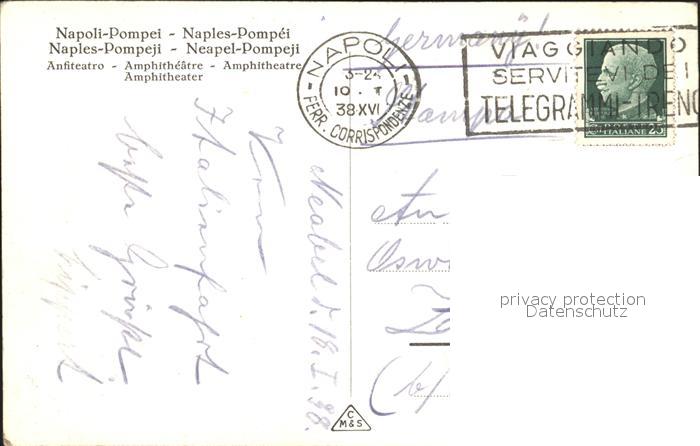 Napoli-Pompei - Naples-Pompéi
Naples-Pompeji - Neapel-Pompeji
Anfiteatro - Amphithéâtre - Amphitheatre
Amphitheater
NAPOLI
FERR. CORRISPONDENZE
38 XVI
VIAGGIANDO
SERVITEVI DEI
TELEGRAMMI-TRENO
ITALIANE 25
Germany!
Neapel d. 18. I. 38.
Von
Italienfahrt
beste Grüße
An
Osw
privacy protection
Datenschutz
C
M&S